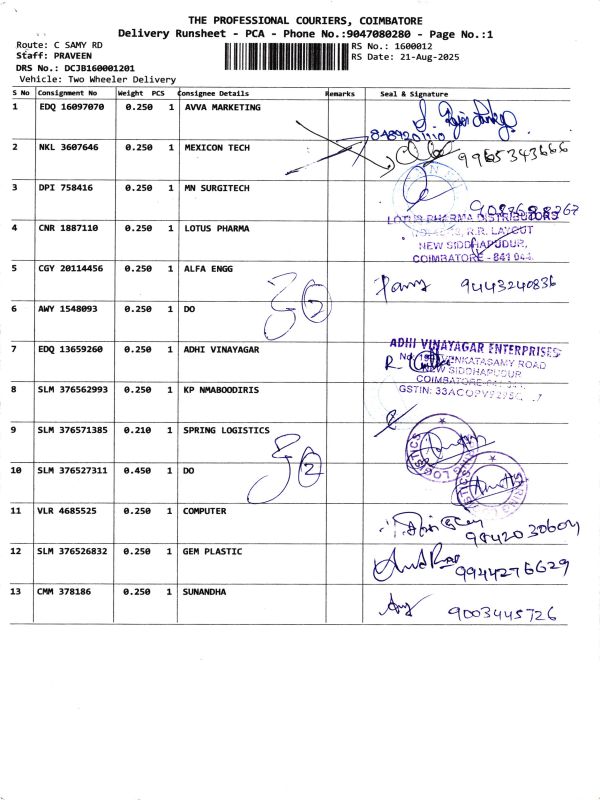 THE PROFESSIONAL COURIERS, COIMBATORE
Delivery Runsheet - PCA - Phone No.:9047080280 - Page No.:1
Route: C SAMY RD RS No.: 1600012
Staff: PRAVEEN RS Date: 21-Aug-2025
DRS No.: DCJB160001201
Vehicle: Two Wheeler Delivery
S No Consignment No Weight PCS Consignee Details Remarks Seal & Signature
1 EDQ 16097070 0.250 1 AVVA MARKETING
8489201110
2 NKL 3607646 0.250 1 MEXICON TECH 9965343666
3 DPI 758416 0.250 1 MN SURGITECH
LOTUS PHARMA DISTRIBUTORS
4 CNR 1887110 0.250 1 LOTUS PHARMA R.R. LAYOUT
NEW SIDDHAPUDUR,
COIMBATORE - 641 044.
5 CGY 20114456 0.250 1 ALFA ENGG 9443240836
6 AWY 1548093 0.250 1 DO
2
7 EDQ 13659260 0.250 1 ADHI VINAYAGAR ADHI VINAYAGAR ENTERPRISES
VENKATASAMY ROAD
NEW SIDDHAPUDUR
COIMBATORE
8 SLM 376562993 0.250 1 KP NMABOODIRIS GSTIN:
9 SLM 376571385 0.210 1 SPRING LOGISTICS
LOGISTICS
10 SLM 376527311 0.450 1 DO
2
11 VLR 4685525 0.250 1 COMPUTER
9842030604
12 SLM 376526832 0.250 1 GEM PLASTIC
9944276629
13 CMM 378186 0.250 1 SUNANDHA 9003445726